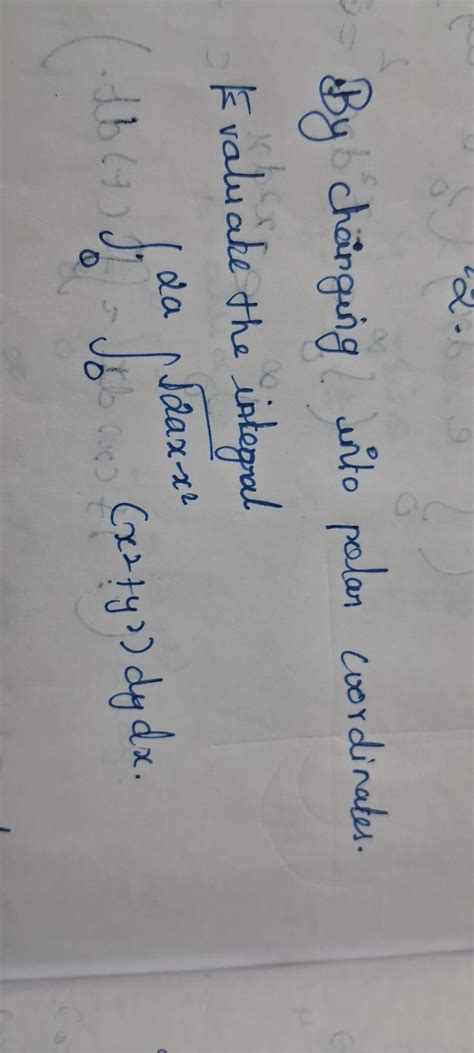 2.
By changing into polar coordinates.
Evaluate the integral
∫₀^2a ∫₀^√2ax-x² (x²+y²) dy dx.